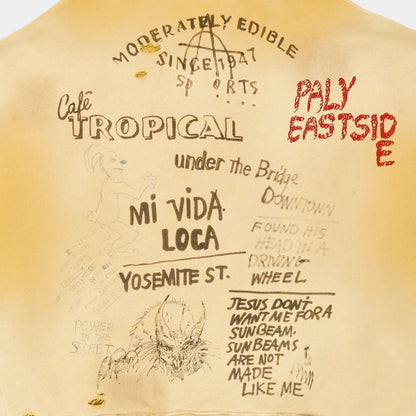 MODERATELY EDIBLE
SINCE 1947
SP ORTS
....
Café
TROPICAL
PALY
EASTSID
E
under The Bridge
DOWNTOWN
MI VIDA
LOCA
FOUND HIS
HEAD IN A
DRIVING
WHEEL
YOSEMITE ST.
JESUS DON'T
WANT ME FOR A
SUNBEAM.
SUNBEAMS
ARE NOT
MADE
LIKE ME
POWER
IN THE
SECRET